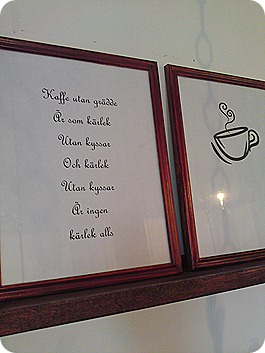 Kaffe utan grädde
Är som kärlek
Utan kyssar
Och kärlek
Utan kyssar
Är ingen
kärlek alls